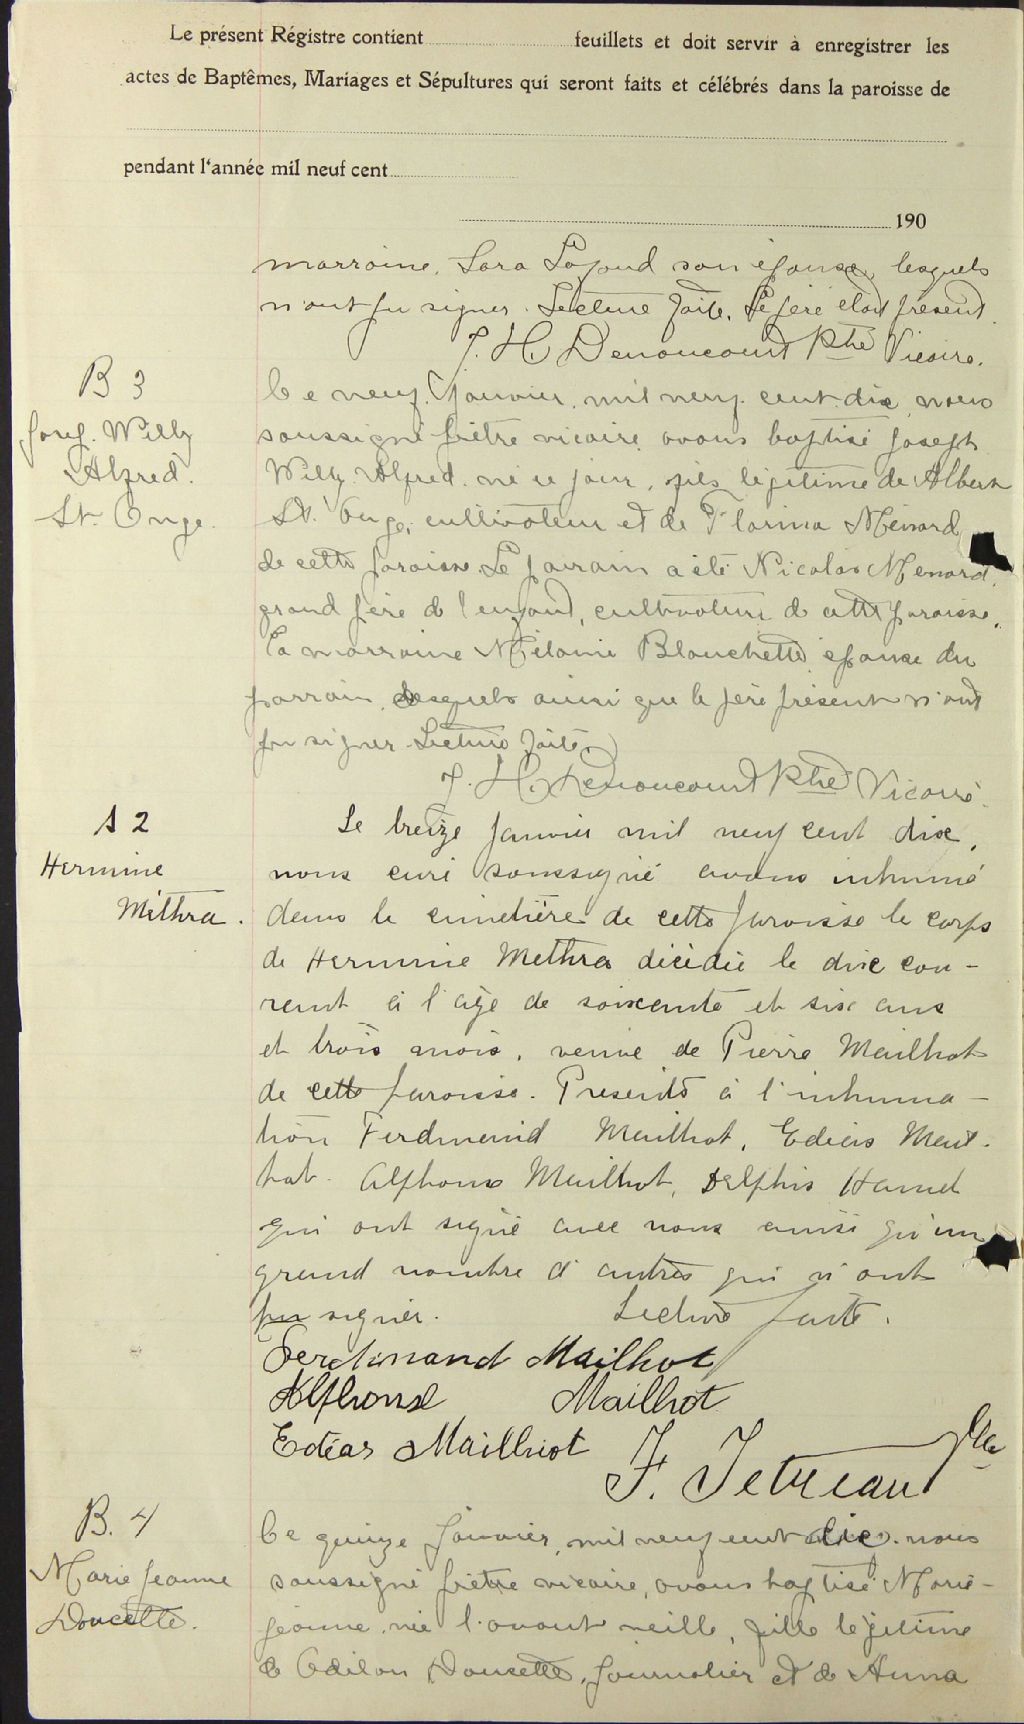 Le présent Régistre contient feuillets et doit servir à enregistrer les
actes de Baptêmes, Mariages et Sépultures qui seront faits et célébrés dans la paroisse de
pendant l'année mil neuf cent
190
marraine, Sara son épouse, lesquels
n'ont pu signer. Lecture faite. Le père était présent.
J. H. Denoncourt Ptre Vicaire.
B 3
Josep. Willy
Alfred.
St. Onge.
Ce neuf Janvier mil neuf cent dix nous
soussigné prêtre vicaire avons baptisé Joseph
Willy Alfred né ce jour, fils légitime de Albert
St. Onge, cultivateur et de Florina Ménard
de cette paroisse. Le parrain a été Nicolas Menard,
grand père de l'enfant, cultivateur de cette paroisse,
la marraine Mélanie Blanchette épouse du
parrain, lesquels ainsi que le père présent n'ont
pu signer. Lecture faite.
J. H. Denoncourt Ptre Vicaire.
S 2
Hermine
Mithra.
Le treize Janvier mil neuf cent dix,
nous curé soussigné avons inhumé
dans le cimetière de cette paroisse le corps
de Hermine Methra décédée le dix cou-
rant à l'âge de soixante et six ans
et trois mois, veuve de Pierre Mailhot
de cette paroisse. Présents à l'inhuma-
tion Ferdinand Mailhot, Edéas Mail-
hot. Alphonse Mailhot, Delphis Hamel
qui ont signé avec nous ainsi qu'un
grand nombre d'autres qui n'ont
pu signer. Lecture faite.
Ferdinand Mailhot
Alphonse Mailhot
Edéas Mailhiot
F. Tétreau Ptre
B. 4
Marie Jeanne
Doucette.
Ce quinze Janvier mil neuf cent dix nous
soussigné prêtre vicaire, avons baptisé Marie-
Jeanne née l'avant veille, fille légitime
de Odilon Doucette, journalier et de Anna